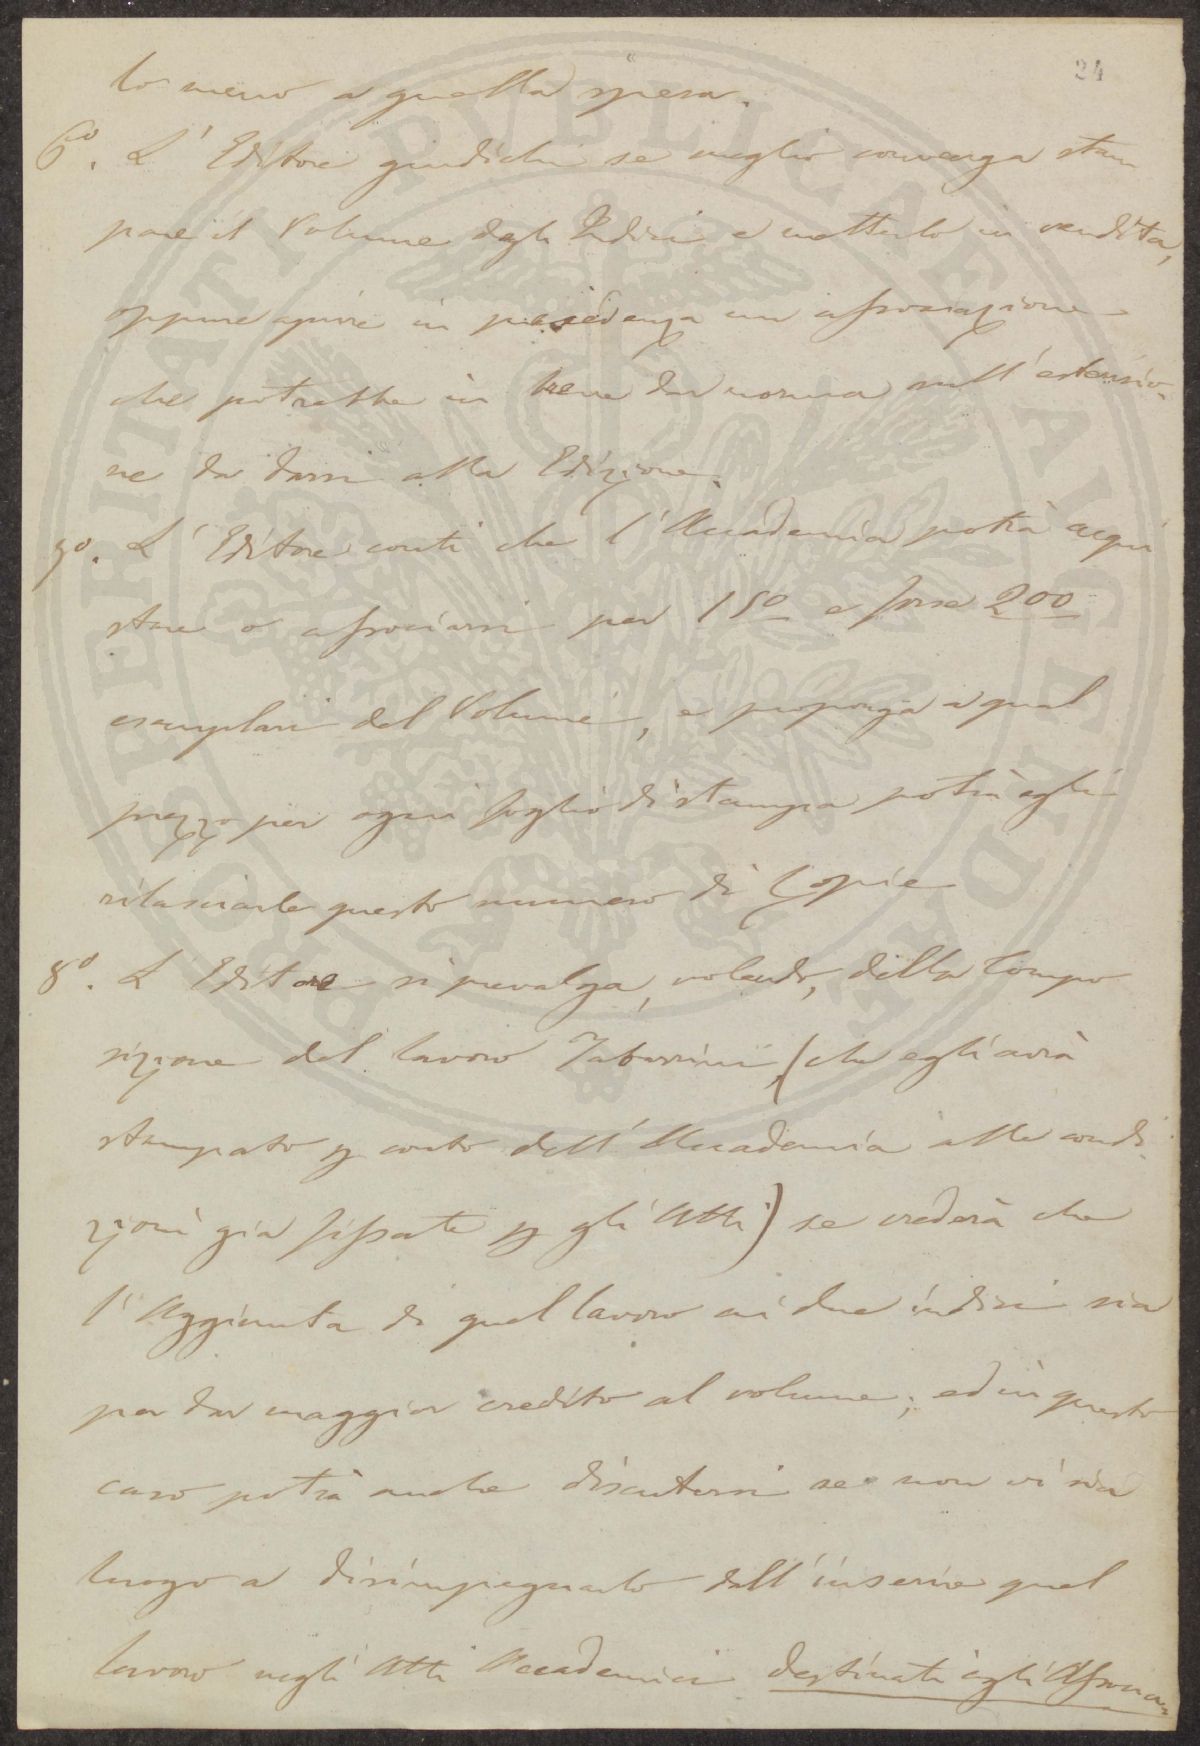 24
lo meno a quella spesa.
6to. L'Editore giudichi se meglio convenga stam
pare il Volume degli Indici e metterlo in vendita,
oppure aprire in precedenza un associazione
che potrebbe in bene dar norma sull'estensio-
ne da darsi alla Edizione.
7o. L'Editore conti che l'Accademia potrà acqui
stare o associarsi per 150 e forse 200
esemplari del Volume, e proponga a qual
prezzo per ogni foglio di stampa potrà egli
rilasciarle questo numero di Copie
8o. L'Editore si prevalga, volendo, della Compo
sizione del lavoro Tabarrini, (che egli avrà
stampato p conto dell'Accademia alle condi-
zioni già fissate p gli Atti) se crederà che
l'Aggiunta di quel lavoro ai due indici sia
per dar maggior credito al volume; ed in questo
caso potrà anche discutersi se non vi sia
luogo a disimpegnarlo dall'inserire quel
lavoro negli Atti Accademici destinati agli Associa-
PROSPERITATI PVBLICAE AVGENDAE